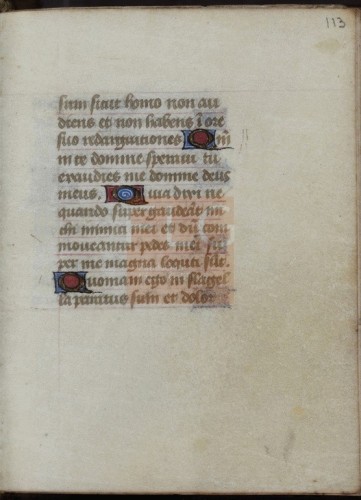 113
sum sicut homo non au
diens et non habens ī ore
suo redargutiones Qm̄
in te domine speraui tu
exaudies me domine deus
meus. Quia dixi ne
quando supergaudeāt mi
chi inimici mei et dū com
moueantur pedes mei su
per me magna locuti sūt.
Quoniam ego in flagel
la paratus sum et dolor